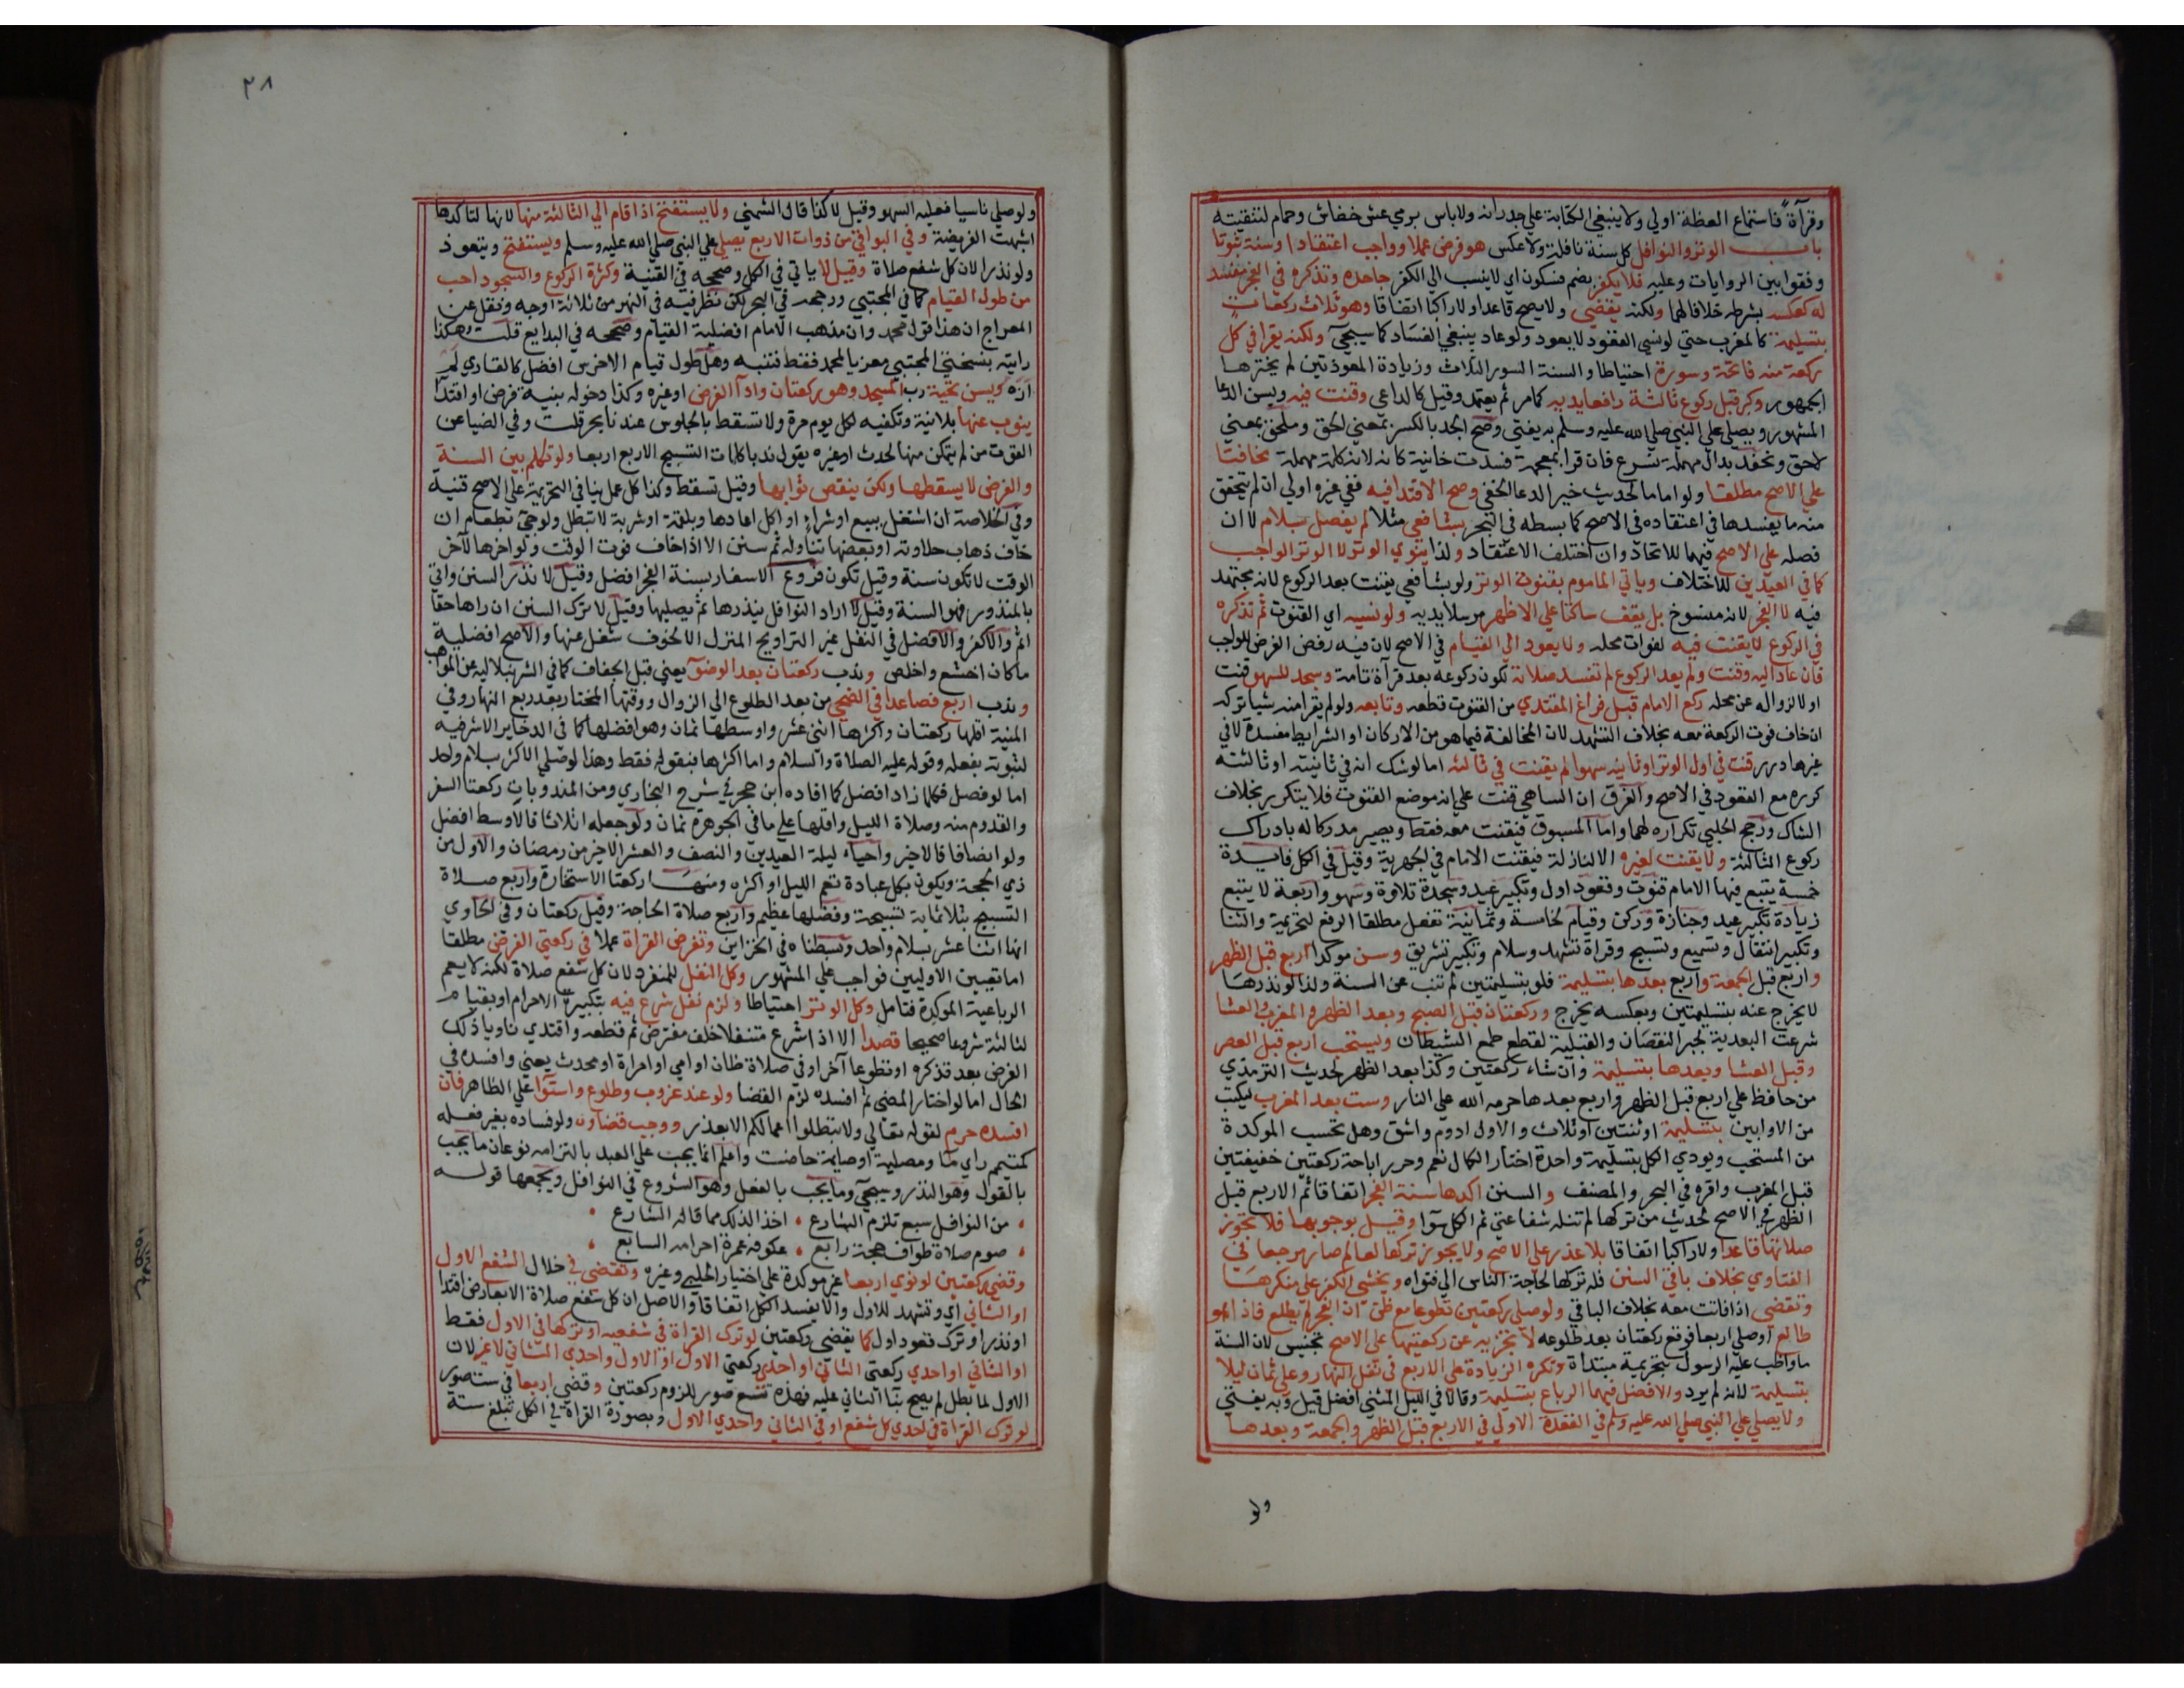 وقرآة فاستماع العظة اولي ولا ينبغي الكتابة علي جدرانه ولا باس برمي عش خفاش وحمام لتنقيته
باب الوتر والنوافل كل سنة نافلة ولا عكس هو فرض عملا وواجب اعتقادا وسنة ثبوتا
وفقوا بين الروايات وعليه فلا يكفر بضم فسكون اي لا ينسب الي الكفر جاحده وتذكره في الفجر مفسد
له كعكسه بشرطه خلافا لهما ولكنه يقضي ولا يصح قاعدا ولا راكبا اتفاقا وهو ثلاث ركعات
بتسليمة كالمغرب حتي لو نسي القعود لا يعود ولو عاد ينبغي الفساد كما سيجيء ولكنه يقرا في كل
ركعة منه فاتحة وسورة احتياطا والسنة السور الثلاث وزيادة المعوذتين لم يخترها
الجمهور وكبر قبل ركوع ثالثة رافعا يديه كما مر ثم يعتمد وقيل كالداعي وقنت فيه ويسن الدعا
المشهور ويصلي علي النبي صلي الله عليه وسلم به يفتي وصح الجد بالكسر بمعني الحق وملحق بمعني
لاحق ونحفد بدال مهملة نسرع فان قرا بمعجمة فسدت خانية كانه لانه كلمة مهملة مخافتا
علي الاصح مطلقا ولو اماما لحديث خير الدعا الخفي وصح الاقتدا فيه ففي غيره اولي ان لم يتحقق
منه ما يفسدها في اعتقاده في الاصح كما بسطه في البحر بشافعي مثلا لم يفصل بسلام لا ان
فصله علي الاصح فيهما للاتحاد وان اختلف الاعتقاد ولذا ينوي الوتر لا الوتر الواجب
كما في العيدين للاختلاف وياتي الماموم بقنوت الوتر ولو بشافعي يقنت بعد الركوع لانه مجتهد
فيه لا الفجر لانه منسوخ بل يقف ساكتا علي الاظهر مرسلا يديه ولو نسيه اي القنوت ثم تذكره
في الركوع لا يقنت فيه لفوات محله ولا يعود الي القيام في الاصح لان فيه رفض الفرض للواجب
فان عاد اليه وقنت ولم يعد الركوع لم تفسد صلاته لكون ركوعه بعد قرآة تامة وسجد للسهو قنت
او لا لزواله عن محله ركع الامام قبل فراغ المقتدي من القنوت قطعه وتابعه ولو لم يقرا منه شيا تركه
ان خاف فوت الركعة معه بخلاف التشهد لان المخالفة فيما هو من الاركان او الشرايط مفسدة لا في
غيرها درر قنت في اول الوتر او ثانيته سهوا لم يقنت في ثالثه اما لو شك انه في ثانيته او ثالثته
كرره مع القعود في الاصح والفرق ان الساهي قنت علي انه موضع القنوت فلا يتكرر بخلاف
الشاك ورجح الحلبي تكراره لهما واما المسبوق فيقنت معه فقط ويصير مدركا له بادراك
ركوع الثالثة ولا يقنت لغيره الا لنازلة فيقنت الامام في الجهرية وقيل في الكل فايدة
خمسة يتبع فيها الامام قنوت وقعود اول وتكبير عيد وسجدة تلاوة وسهو واربعة لا يتبع
زيادة تكبير عيد وجنازة وركن وقيام لخامسة وثمانية تفعل مطلقا الرفع لتحريمة والثنا
وتكبير انتقال وتسميع وتسبيح وقراة تشهد وسلام وتكبير تشريق وسن موكدا اربع قبل الظهر
واربع قبل الجمعة واربع بعدها بتسليمة فلو بتسليمتين لم تنب عن السنة ولذا لو نذرها
لا يخرج عنه بتسليمتين وبعكسه يخرج وركعتان قبل الصبح وبعد الظهر والمغرب والعشا
شرعت البعدية لجبر النقصان والقبلية لقطع طمع الشيطان ويستحب اربع قبل العصر
وقبل العشا وبعدها بتسليمة وان شاء ركعتين وكذا بعد الظهر لحديث الترمذي
من حافظ علي اربع قبل الظهر واربع بعدها حرمه الله علي النار وست بعد المغرب ليكتب
من الاوابين بتسليمة او ثنتين او ثلاث والاول ادوم واشق وهل تحسب الموكدة
من المستحب ويودي الكل بتسليمة واحدة اختار الكمال نعم وحرر اباحة ركعتين خفيفتين
قبل المغرب واقره في البحر والمصنف والسنن اكدها سنة الفجر اتفاقا ثم الاربع قبل
الظهر في الاصح لحديث من تركها لم تنله شفاعتي ثم الكل سوا وقيل بوجوبها فلا تجوز
صلاتها قاعدا ولا راكبا اتفاقا بلا عذر علي الاصح ولا يجوز تركها لعالم صار مرجعا في
الفتاوي بخلاف باقي السنن فله تركها لحاجة الناس الي فتواه ويخشي الكفر علي منكرها
وتقضي اذا فاتت معه بخلاف الباقي ولو صلي ركعتين تطوعا مع ظن ان الفجر لم يطلع فاذا هو
طالع او صلي اربعا فوقع ركعتان بعد طلوعه لا تجزيه عن ركعتيها علي الاصح تجنيس لان السنة
ما واظب عليه الرسول بتحريمة مبتداة وتكره الزيادة علي الاربع في نفل النهار وعلي ثمان ليلا
بتسليمة لانه لم يرد والافضل فيهما الرباع بتسليمة وقالا في الليل المثني افضل قيل وبه يفتي
ولا يصلي علي النبي صلي الله عليه وسلم في القعدة الاولي في الاربع قبل الظهر والجمعة وبعدها
ولو
٢٨
ولو صلي ناسيا فعليه السهو وقيل لا كذا قال الشمني ولا يستفتح اذا قام الي الثالثة منها لانها لتاكدها
اشبهت الفريضة وفي البواقي من ذوات الاربع يصلي علي النبي صلي الله عليه وسلم ويستفتح ويتعوذ
ولو نذرا لان كل شفع صلاة وقيل لا ياتي في الكل وصححه في القنية وكثرة الركوع والسجود احب
من طول القيام كما في المجتبي ورجحه في البحر لكن نظر فيه في النهر من ثلاثة اوجه ونقل عن
المعراج ان هذا قول محمد وان مذهب الامام افضلية القيام وصححه في البدايع قلت وهكذا
رايته بنسختي المجتبي معزيا لمحمد فقط فتنبه وهل طول قيام الاخرس افضل كالقاري لم
اره ويسن تحية رب المسجد وهو ركعتان وادآ الفرض او غيره وكذا دخوله بنية فرض او اقتدآ
ينوب عنها بلا نية وتكفيه لكل يوم مرة ولا تسقط بالجلوس عندنا بحر قلت وفي الضيا عن
القوت من لم يتمكن منها لحدث او غيره يقول ندبا كلمات التسبيح الاربع اربعا ولو تكلم بين السنة
والفرض لا يسقطها ولكن ينقص ثوابها وقيل تسقط وكذا كل عمل ينافي التحريمة علي الاصح قنية
وفي الخلاصة ان اشتغل ببيع او شراء او اكل اعادها وبلقمة او شربة لا تبطل ولو جيء بطعام ان
خاف ذهاب حلاوته او بعضها تناوله ثم سنن الا اذا خاف فوت الوقت ولو اخرها لآخر
الوقت لا تكون سنة وقيل تكون فروع الاسفار بسنة الفجر افضل وقيل لا نذر السنن واتي
بالمنذور فهو السنة وقيل لا اراد النوافل ينذرها ثم يصليها وقيل لا ترك السنن ان راها حقا
اثم والا كفر والافضل في النفل غير التراويح المنزل الا لخوف شغل عنها والاصح افضلية
ما كان اخشع واخلص وندب ركعتان بعد الوضوء يعني قبل الجفاف كما في الشرنبلالية عن المواهب
وندب اربع فصاعدا في الضحي من بعد الطلوع الي الزوال ووقتها المختار بعد ربع النهار وفي
المنية اقلها ركعتان واكثرها اثني عشر واوسطها ثمان وهو افضلها كما في الدخاير الاشرفية
لثبوته بفعله وقوله عليه الصلاة والسلام واما اكثرها فبقوله فقط وهذا لو صلي الاكثر بسلام واحد
اما لو فصل فكلما زاد افضل كما افاده ابن حجر في شرح البخاري ومن المندوبات ركعتا السفر
والقدوم منه وصلاة الليل واقلها علي ما في الجوهرة ثمان ولو جعله اثلاثا فالاوسط افضل
ولو انصافا فالاخير واحياء ليلة العيدين والنصف والعشر الاخير من رمضان والاول من
ذي الحجة ويكون بكل عبادة تعم الليل او اكثره ومنها ركعتا الاستخارة واربع صلاة
التسبيح بثلاثماية تسبيحة وفضلها عظيم واربع صلاة الحاجة وقيل ركعتان وفي الحاوي
انها اثنا عشر بسلام واحد وبسطناه في الخزاين وتفرض القراة عملا في ركعتي الفرض مطلقا
اما تعيين الاوليين فواجب علي المشهور وكل النفل للمنفرد لان كل شفع صلاة لكنه لا يعم
الرباعية الموكدة فتامل وكل الوتر احتياطا ولزم نفل شرع فيه بتكبيرة الاحرام او بقيام
لثالثة شروعا صحيحا قصدا الا اذا شرع متنفلا خلف مفترض ثم قطعه واقتدي ناويا ذلك
الفرض بعد تذكره او تطوعا آخر او في صلاة ظان او امي او امراة او محدث يعني وافسده في
الحال اما لو اختار المضي ثم افسده لزم القضا ولو عند غروب وطلوع واستوآ علي الظاهر فان
افسده حرم لقوله تعالي ولا تبطلوا اعمالكم الا بعذر ووجب قضاوه ولو فساده بغير فعله
كمتيمم راي مآ ومصلية او صايمة حاضت واعلم انما يجب علي العبد بالتزامه نوعان ما يجب
بالقول وهو النذر وسيجيء وما يجب بالفعل وهو الشروع في النوافل ويجمعها قوله
من النوافل سبع تلزم الشارع . اخذا لذلك مما قاله الشارع
صوم صلاة طواف حجة رابع . عكوفه عمرة احرامه السابع
وقضي ركعتين لو نوي اربعا غير موكدة علي اختيار الحلبي وغيره ونقض في خلال الشفع الاول
او الثاني اي وتشهد للاول والا يفسد الكل اتفاقا والاصل ان كل شفع صلاة الا بعارض اقتدا
او نذر او ترك قعود اول كما يقضي ركعتين لو ترك القراة في شفعيه او تركها في الاول فقط
او الثاني او احدي ركعتي الثاني او احدي ركعتي الاول او الاول واحدي الثاني لا غير لان
الاول لما بطل لم يصح بنا الثاني عليه فهذه تسع صور للزوم ركعتين وقضي اربعا في ست صور
لو ترك القراة في احدي كل شفع او في الثاني واحدي الاول وبصورة القراة في الكل تبلغ ستة